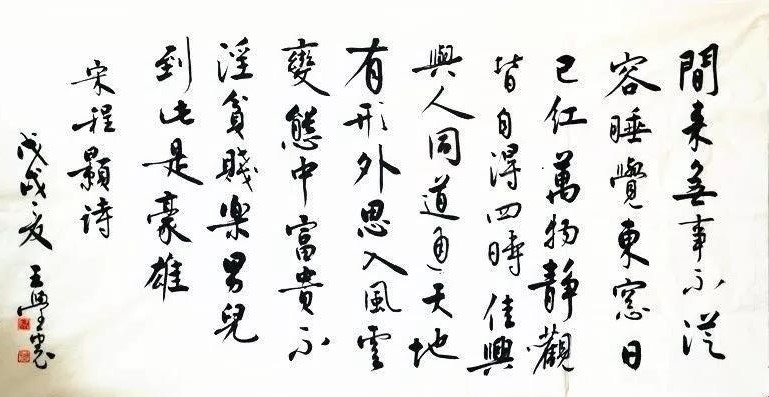 間来無事不從
容睡覺東窓日
已紅萬物靜觀
皆自得四時佳興
與人同道通天地
有形外思入風雲
變態中富貴不
淫貧賤樂男兒
到此是豪雄
宋程顥詩
戊戌夏 王學